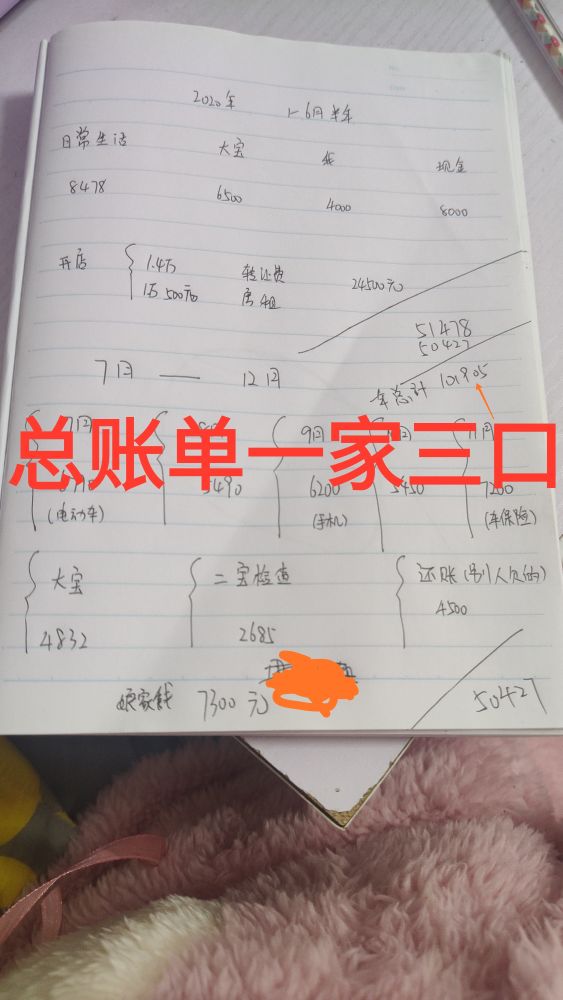 2020年 1-6月半年
日常生活 大宝 现金
8478 6500 4000 8000
开店 1.4万 转让费 24500元
1万500元 房租
51478
50427
7月 — 12月 年总计 101905
总账单一家三口
7月 9月 11月
5490 6200 5450 7200
(电动车) (手机) (车保险)
大宝 二宝检查 还账(别人欠的)
4832 2685 4500
娘家钱 7300元 50427